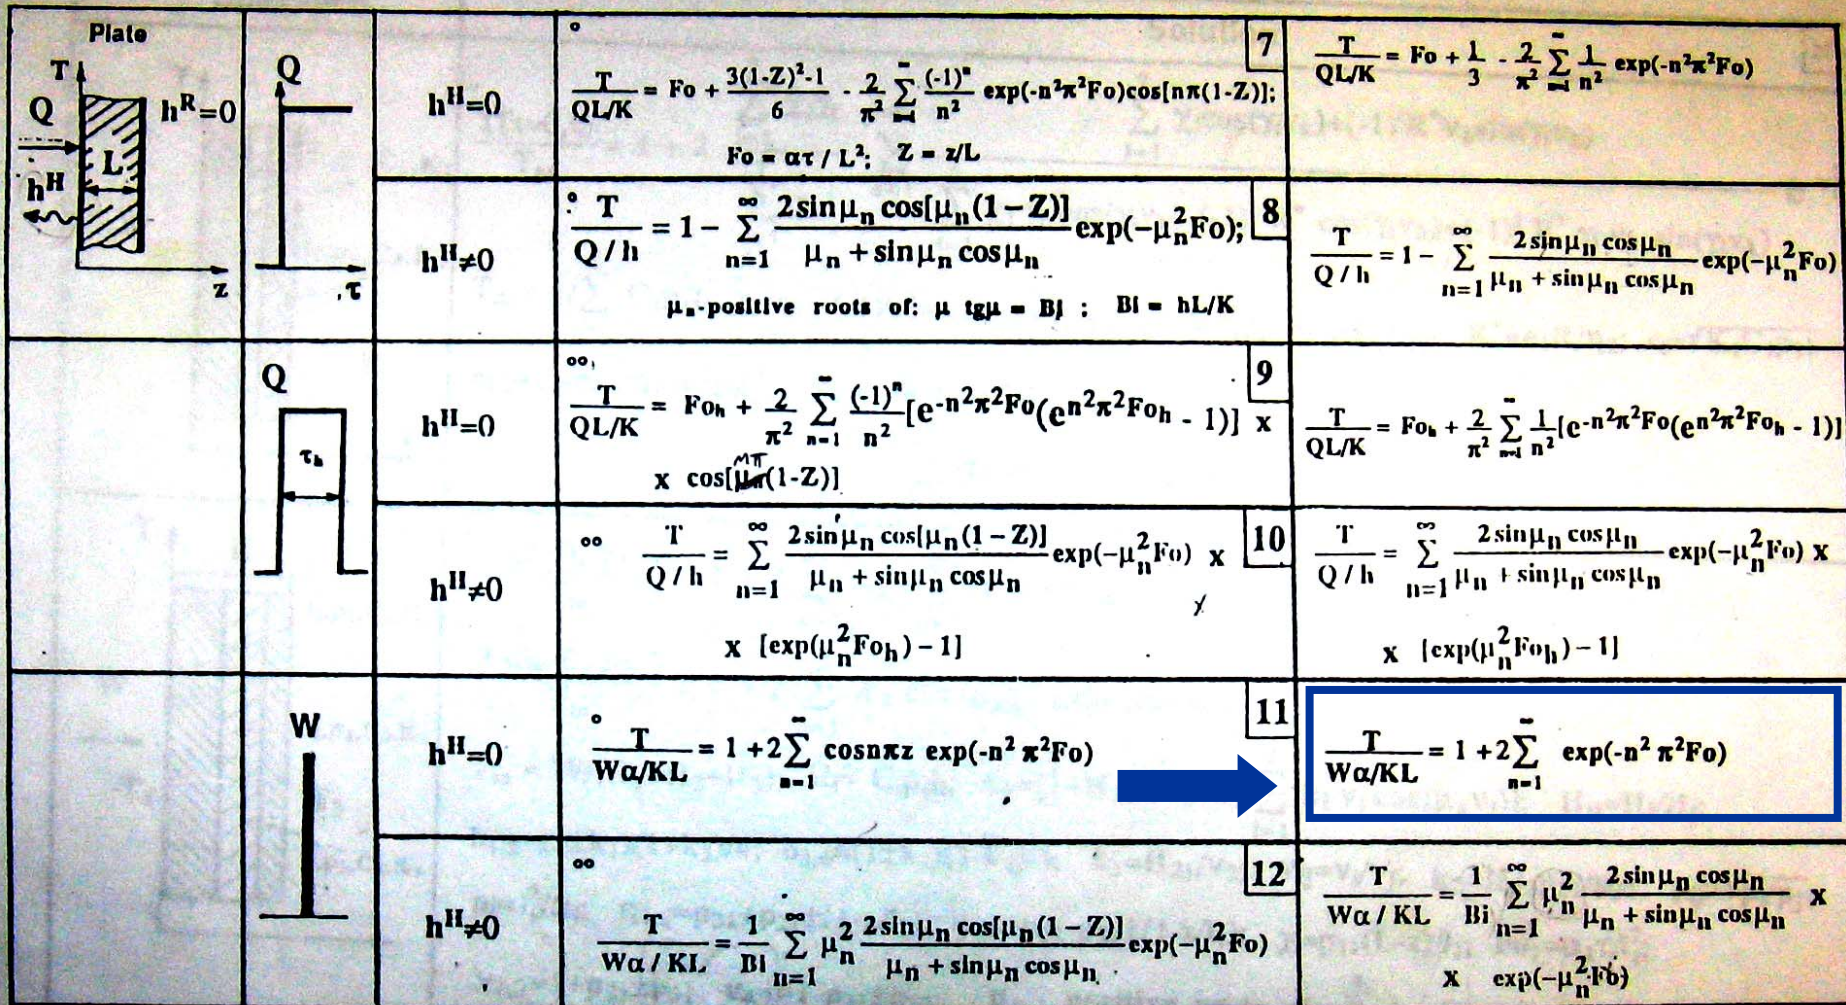 Plate
T
Q
h^R=0
L
h^H
z
Q
τ
h^H=0
°
7
T/(QL/K) = Fo + (3(1-Z)²-1)/6 - 2/π² ∑_{n=1}^{∞} (-1)^n/n² exp(-n²π²Fo)cos[nπ(1-Z)];
Fo = ατ / L²; Z = z/L
T/(QL/K) = Fo + 1/3 - 2/π² ∑_{n=1}^{∞} 1/n² exp(-n²π²Fo)
h^H≠0
°
8
T/(Q/h) = 1 - ∑_{n=1}^{∞} (2sinμ_n cos[μ_n(1-Z)])/(μ_n + sinμ_n cosμ_n) exp(-μ_n²Fo);
μ_n-positive roots of: μ tgμ = Bi ; Bi = hL/K
T/(Q/h) = 1 - ∑_{n=1}^{∞} (2sinμ_n cosμ_n)/(μ_n + sinμ_n cosμ_n) exp(-μ_n²Fo)
Q
τ_h
h^H=0
°°
9
T/(QL/K) = Fo_h + 2/π² ∑_{n=1}^{∞} (-1)^n/n² [e^{-n²π²Fo}(e^{n²π²Fo_h} - 1)] x
x cos[nπ(1-Z)]
T/(QL/K) = Fo_h + 2/π² ∑_{n=1}^{∞} 1/n² [e^{-n²π²Fo}(e^{n²π²Fo_h} - 1)]
h^H≠0
°°
10
T/(Q/h) = ∑_{n=1}^{∞} (2sinμ_n cos[μ_n(1-Z)])/(μ_n + sinμ_n cosμ_n) exp(-μ_n²Fo) x
x [exp(μ_n²Fo_h) - 1]
T/(Q/h) = ∑_{n=1}^{∞} (2sinμ_n cosμ_n)/(μ_n + sinμ_n cosμ_n) exp(-μ_n²Fo) x
x [exp(μ_n²Fo_h) - 1]
W
h^H=0
°
11
T/(Wα/KL) = 1 + 2∑_{n=1}^{∞} cosnπz exp(-n² π²Fo)
T/(Wα/KL) = 1 + 2∑_{n=1}^{∞} exp(-n² π²Fo)
h^H≠0
°°
12
T/(Wα/KL) = 1/Bi ∑_{n=1}^{∞} μ_n² (2sinμ_n cos[μ_n(1-Z)])/(μ_n + sinμ_n cosμ_n) exp(-μ_n²Fo)
T/(Wα/KL) = 1/Bi ∑_{n=1}^{∞} μ_n² (2sinμ_n cosμ_n)/(μ_n + sinμ_n cosμ_n) x
x exp(-μ_n²Fo)